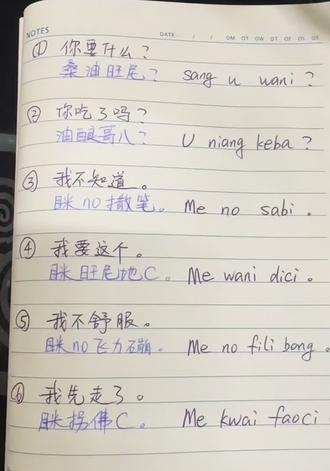 NOTES
DATE: / / OM OT OW OT OF OS OS
① 你要什么？
桑油旺尼？ sang u wani ?
② 你吃了吗？
油酿哥八？ U niang keba ?
③ 我不知道。
眯no撒笔。 Me no sabi .
④ 我要这个。
眯旺尼地C。 Me wani dici .
⑤ 我不舒服。
眯no飞力嘣。 Me no fili bong .
⑥ 我先走了。
眯拐佛C。 Me kwai faoci .